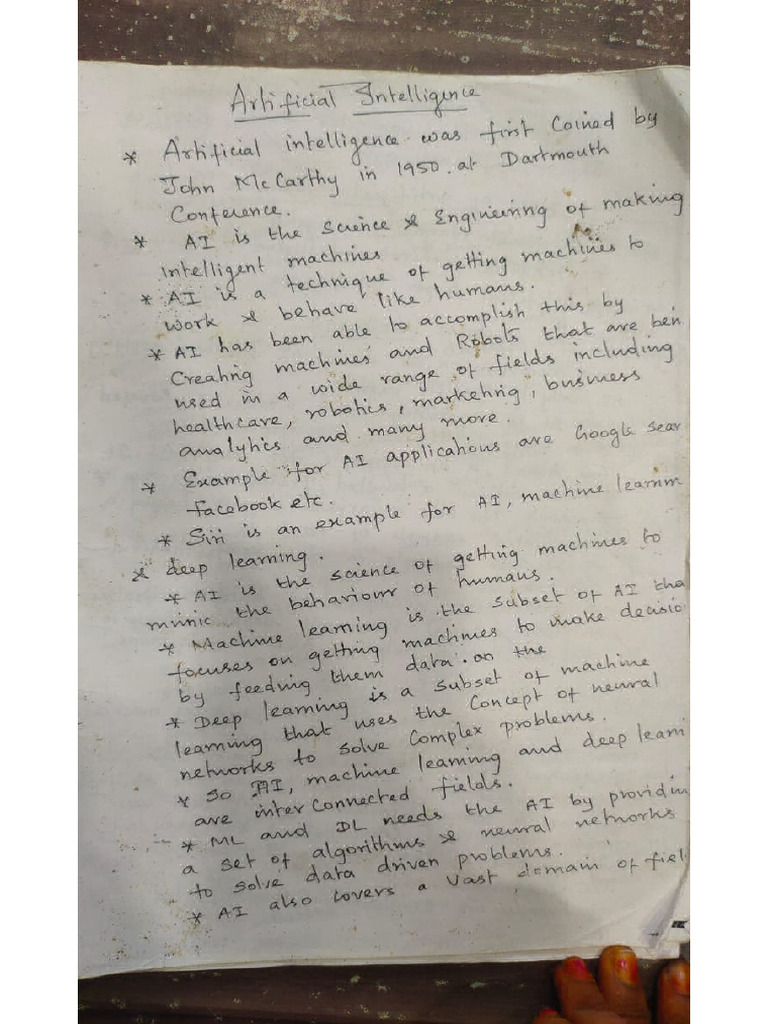 Artificial Intelligence
* Artificial intelligence was first Coined by
John McCarthy in 1950. at Dartmouth
Conference.
* AI is the Science & Engineering of making
intelligent machines
* AI is a technique of getting machines to
work & behave like humans.
* AI has been able to accomplish this by
Creating machines and Robots that are bein
used in a wide range of fields including
healthcare, robotics, marketing, business
analytics and many more.
* Example for AI applications are Google Sear
facebook etc.
* Siri is an example for AI, machine learnin
& deep learning.
* AI is the science of getting machines to
mimic the behaviour of humans.
* Machine learning is the subset of AI tha
focuses on getting machines to make decisio
by feeding them data. on the
* Deep learning is a subset of machine
learning that uses the Concept of neural
networks to solve Complex problems.
* So AI, machine learning and deep learni
are inter Connected fields.
* ML and DL needs the AI by providin
a set of algorithms & neural networks
to solve data driven problems.
* AI also covers a vast domain of fiel